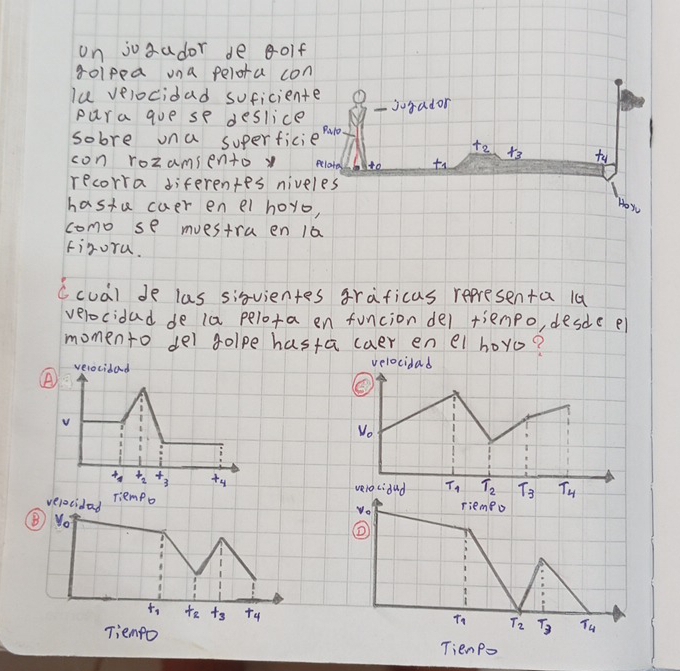 un jugador de golf
golpea una pelota con
la velocidad suficiente
para que se deslice
sobre una superficie
con rozamiento y
recorra diferentes niveles
hasta caer en el hoyo,
como se muestra en la
figura.
jugador
Palo
Pelota
to
t1
t2
t3
t4
Hoyo
¿cuál de las siguientes gráficas representa la
velocidad de la pelota en funcion del tiempo, desde el
momento del golpe hasta caer en el hoyo?
A
velocidad
v
t1 t2 t3 t4
Tiempo
C
velocidad
Vo
T1 T2 T3 T4
Tiempo
B
velocidad
Vo
t1 t2 t3 t4
Tiempo
D
velocidad
Vo
T1 T2 T3 T4
Tiempo